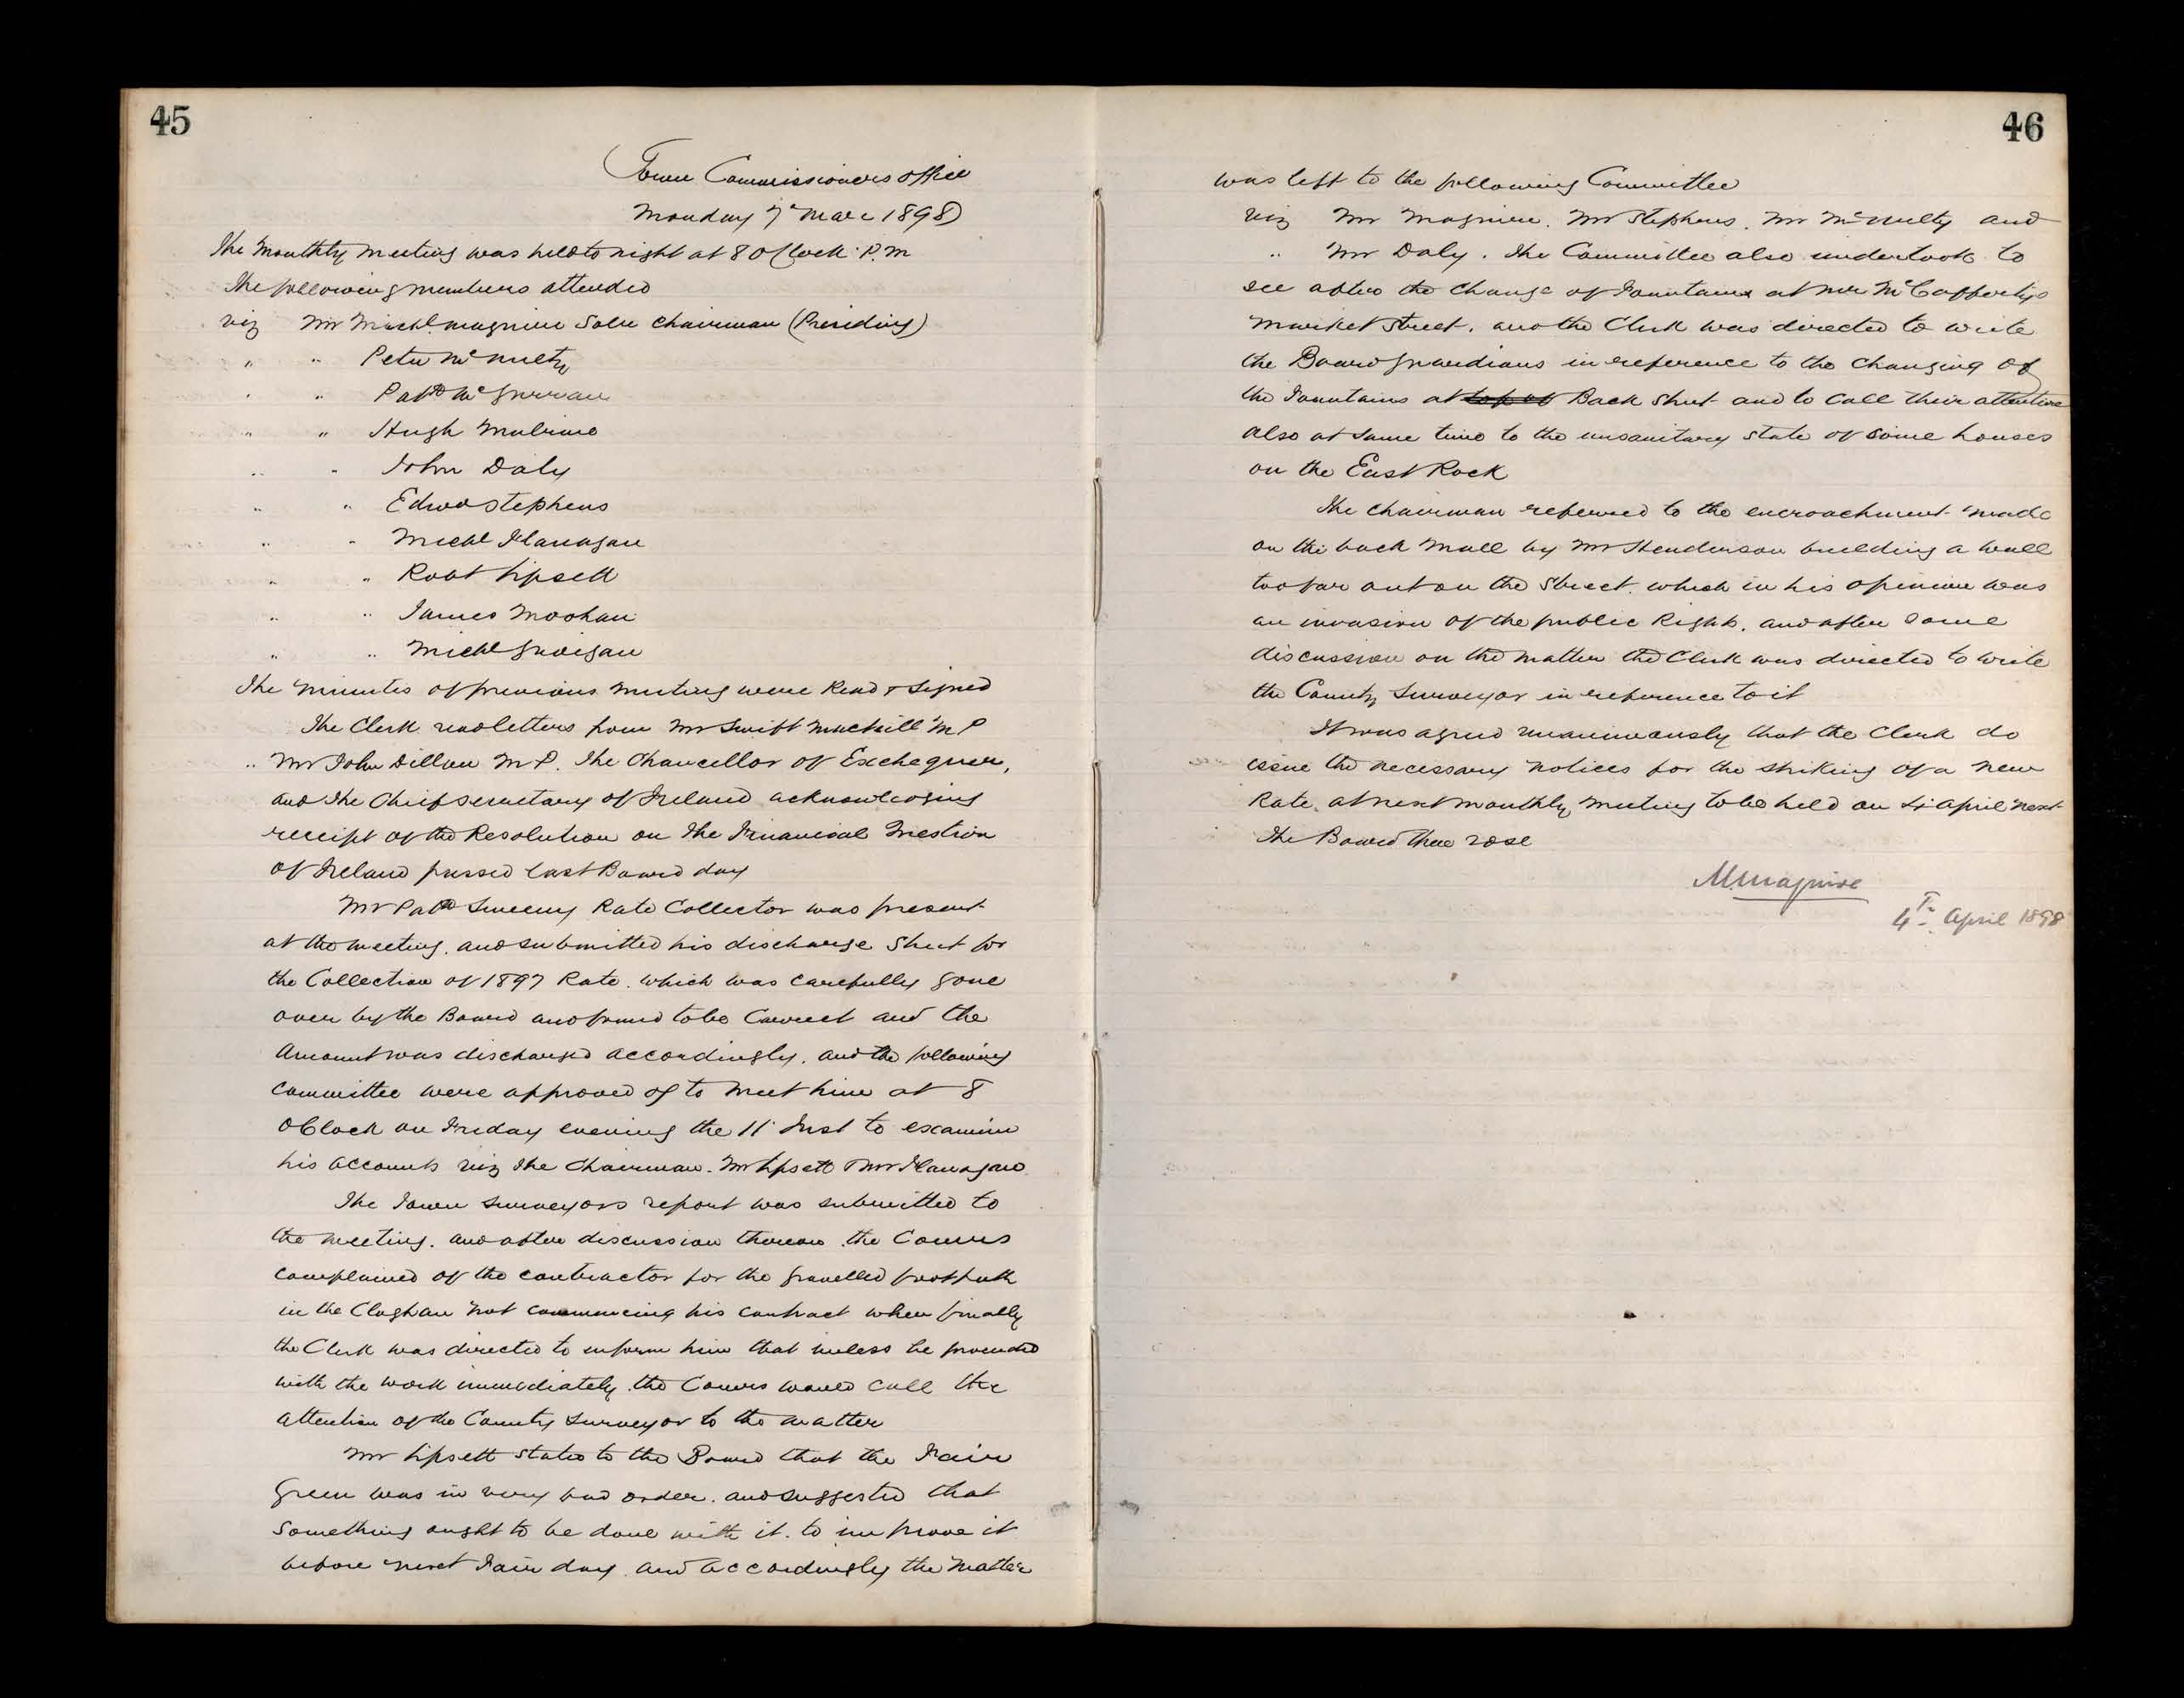 45
Town Commissioners office
Monday 7 Mar 1898
The Monthly meeting was held to night at 8 OClock P.M
The following members attended
viz Mr Michl Maguire Solr Chairman (Presiding)
" " Peter McNulty
" " Patk McGurran
" " Hugh Mulrine
" " John Daly
" " Edwd Stephens
" " Michl Flanagan
" " Robt Lipsett
" " James Moohan
" " Michl Gavigan
The minutes of previous meeting were Read & Signed
The Clerk read letters from Mr Swift MacNeill M P
" Mr John Dillon M P. The Chancellor of Exchequer,
and the Chief Secretary of Ireland acknowledging
receipt of the Resolution on the Financial Question
of Ireland passed last Board day
Mr Patk Sweeny Rate Collector was present
at the meeting. and submitted his discharge Sheet for
the Collection of 1897 Rate. which was carefully gone
over by the Board and found to be Correct and the
Amount was discharged accordingly. and the following
Committee were approved of to meet him at 8
OClock on Friday evening the 11 Inst to examine
his accounts viz The Chairman. Mr Lipsett & Mr Flanagan
The Town Surveyors report was submitted to
the meeting. and after discussion thereon the Comrs
complained of the contractor for the gravelled footpath
in the Cloghan not commencing his contract when finally
the Clerk was directed to inform him that unless he proceeded
with the work immediately the Comrs would call the
attention of the County Surveyor to the matter
Mr Lipsett stated to the Board that the Fair
Green was in very bad order. and suggested that
Something ought to be done with it. to improve it
before next Fair day and accordingly the matter
46
was left to the following Committee
viz Mr Maguire. Mr Stephens. Mr McNulty and
" Mr Daly. The Committee also undertook to
see after the change of Fountain at Mr McCaffertys
Market Street. and the Clerk was directed to write
the Board Guardians in reference to the changing of
the Fountains at top of Back Street and to call their attention
also at same time to the unsanitary state of some houses
on the East Rock
The Chairman referred to the encroachment made
on the back Mall by Mr Henderson building a wall
too far out on the Street. which in his opinion was
an invasion of the public Right. and after some
discussion on the matter the Clerk was directed to write
the County Surveyor in reference to it
It was agreed unanimously that the Clerk do
issue the necessary notices for the striking of a new
Rate. at next monthly meeting to be held on 4 April next
The Board then rose
M Maguire
4th April 1898